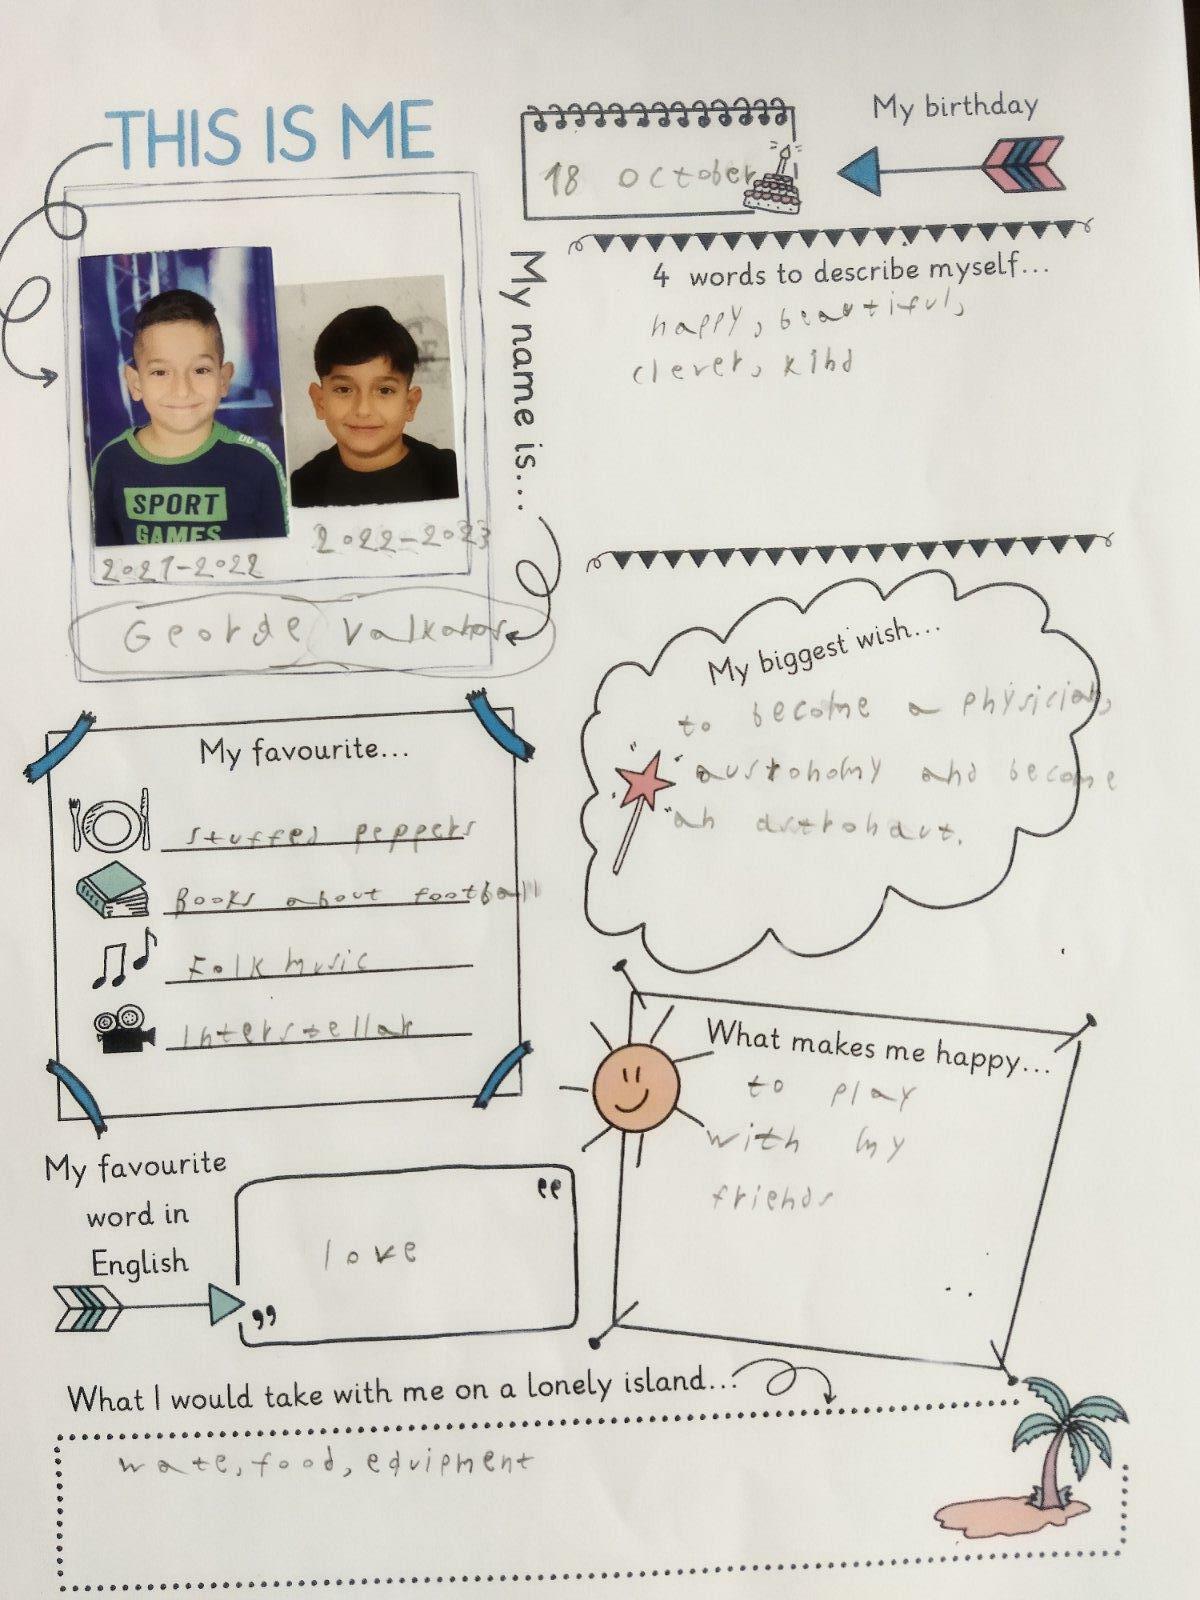 THIS IS ME
My birthday
18 October
4 words to describe myself...
happy, beautiful,
clever, kind
My name is...
SPORT
GAMES
2021-2022
2022-2023
George Valkanos
My biggest wish...
to become a physician,
austonomy and become
an astronaut.
My favourite...
stuffed peppers
Books about football
Folk music
Interstellar
What makes me happy...
to play
with my
friends
My favourite
word in
English
love
What I would take with me on a lonely island...
wate, food, equipment